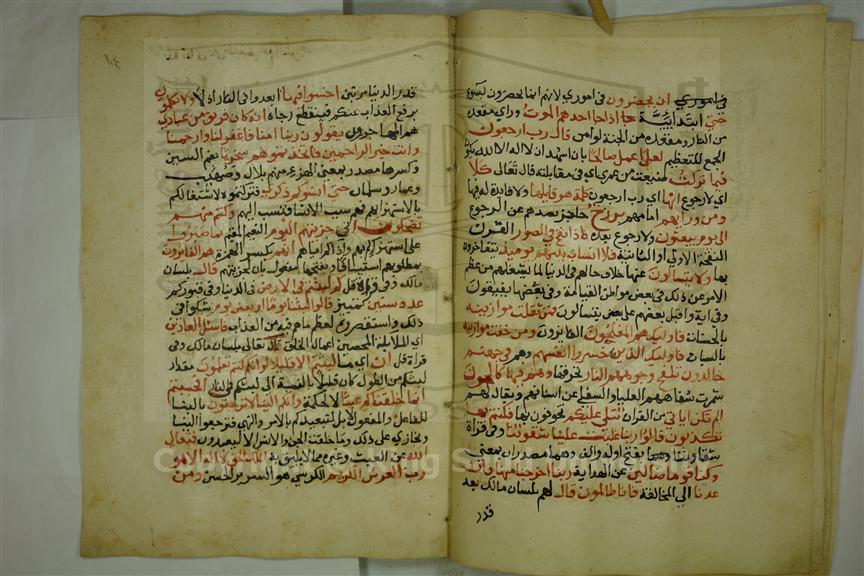 في اموري ان يحضرون في اموري لانهم انما يحضرون بسوء
حتى ابتدائية اذا جا احدهم الموت وراى مقعده
من النار ومقعده من الجنة لو امن قال رب ارجعون
الجمع للتعظيم لعلي اعمل صالحا بان اشهد ان لا اله الا الله يكون
فيما تركت ضيعت من عمري اي في مقابلته قال تعالى كلا
اي لا رجوع انها اي رب ارجعون كلمة هو قايلها ولا فايدة له فيها
ومن ورايهم امامهم برزخ حاجز يصدهم عن الرجوع
الى يوم يبعثون ولا رجوع بعده فاذا نفخ في الصور القرن
النفخة الاولى او الثانية فلا انساب بينهم يوميذ يتفاخرون
بها ولا يتسالون عنها خلاف حالهم في الدنيا لما يشغلهم من عظم
الامر عن ذلك في بعض مواطن القيامة وفي بعضها يفيقون
وفي اية واقبل بعضهم على بعض يتسالون فمن ثقلت موازينه
بالحسنات فاوليك هم المفلحون الفايزون ومن خفت موازينه
بالسيات فاوليك الذين خسروا انفسهم وهم في جهنم
خالدون تلفح وجوههم النار تحرقها وهم فيها كالحون
شمرت شفاههم العليا والسفلى عن اسنانهم ويقال لهم
الم تكن اياتي من القران تتلى عليكم تخوفون بها فكنتم بها
تكذبون قالوا ربنا غلبت علينا شقوتنا وفي قراة
شقاوتنا بفتح اوله والف وهما مصدران بمعنى
وكنا قوما ضالين عن الهداية ربنا اخرجنا منها فان
عدنا الى المخالفة فانا ظالمون قال لهم بلسان مالك بعد
قدر
قدر الدنيا مرتين اخسوا فيها ابعدوا في النار اذلا ولا تكلمون
برفع العذاب عنكم فينقطع رجاهم انه كان فريق من عبادي
هم المهاجرون يقولون ربنا امنا فاغفر لنا وارحمنا
وانت خير الراحمين فاتخذتموهم سخريا بضم السين
وكسرها مصدر بمعنى الهزء منهم بلال وصهيب
وعمار وسلمان حتى انسوكم ذكري فتركتموه لاشتغالكم
بالاستهزا بهم فهم سبب الانسا فنسب اليهم وكنتم منهم
تضحكون اني جزيتهم اليوم النعيم المقيم بما صبروا
على استهزايكم بهم واذاكم اياهم انهم بكسر الهمزة هم الفايزون
بمطلوبهم استيناف وبفتحها مفعول ثان لجزيتهم قال بلسان
مالك وفي قراة قل كم لبثتم في الارض في الدنيا وفي قبوركم
عدد سنين تمييز قالوا لبثنا يوما او بعض يوم شكوا في
ذلك واستقصروه لعظم ما هم فيه من العذاب فاسئل العادين
اي الملايكة المحصين اعمال الخلق قال تعالى بلسان مالك وفي
قراة قل ان اي ما لبثتم الا قليلا لو انكم كنتم تعلمون مقدار
لبثكم من الطول كان قليلا بالنسبة الى لبثكم في النار افحسبتم
انما خلقناكم عبثا لا لحكمة وانكم الينا لا ترجعون بالبنا
للفاعل والمفعول لا بل لنتعبدكم بالامر والنهي وترجعوا الينا
ونجازي على ذلك وما خلقت الجن والانس الا ليعبدون فتعالى
الله عن العبث وغيره مما لا يليق به الملك الحق لا اله الا هو
رب العرش الكريم الكرسي هو السرير الحسن ومن